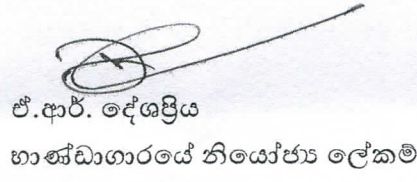 ඒ.ආර්. දේශප්‍රිය
භාණ්ඩාගාරයේ නියෝජ්‍ය ලේකම්